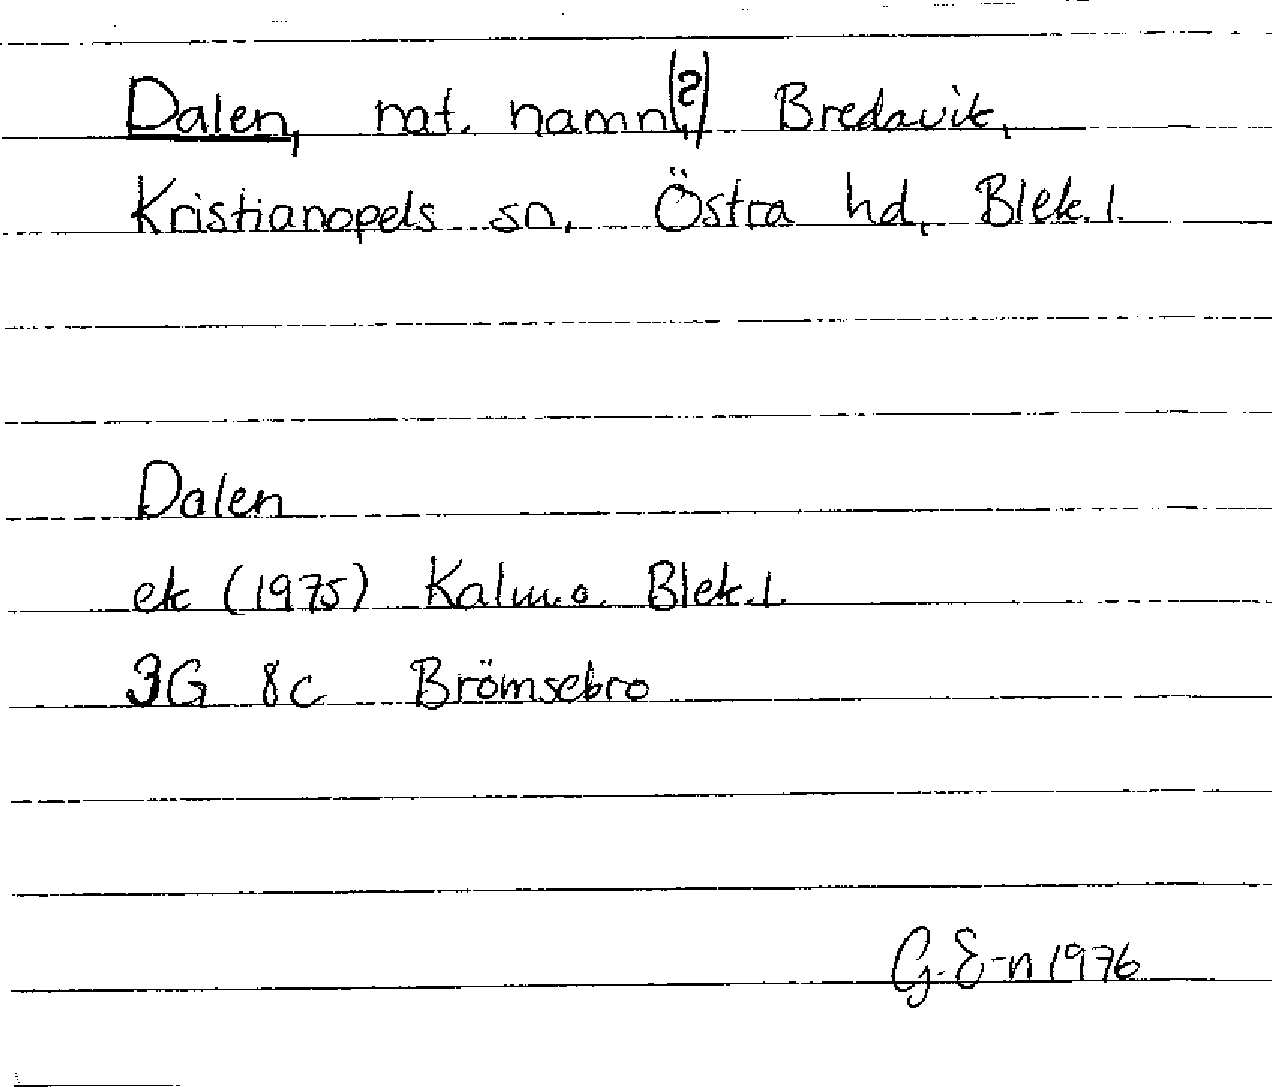 Dalen, nat. namn(?) Bredavik,
Kristianopels sn, Östra hd, Blek. l.
Dalen
ek (1975) Kalm. o. Blek. l.
3G 8c Brömsebro
G. E-n 1976